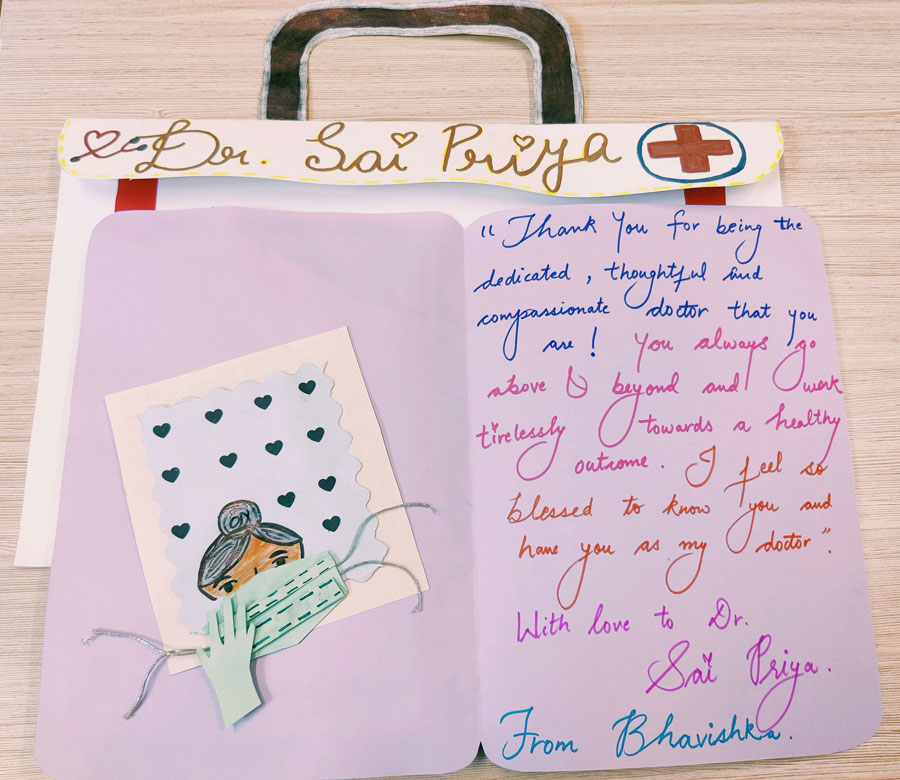 Dr. Sai Priya
"Thank You for being the
dedicated, thoughtful and
compassionate doctor that you
are! You always go
above & beyond and work
tirelessly towards a healthy
outcome. I feel so
blessed to know you and
have you as my doctor".
With love to Dr.
Sai Priya.
From Bhavishka.